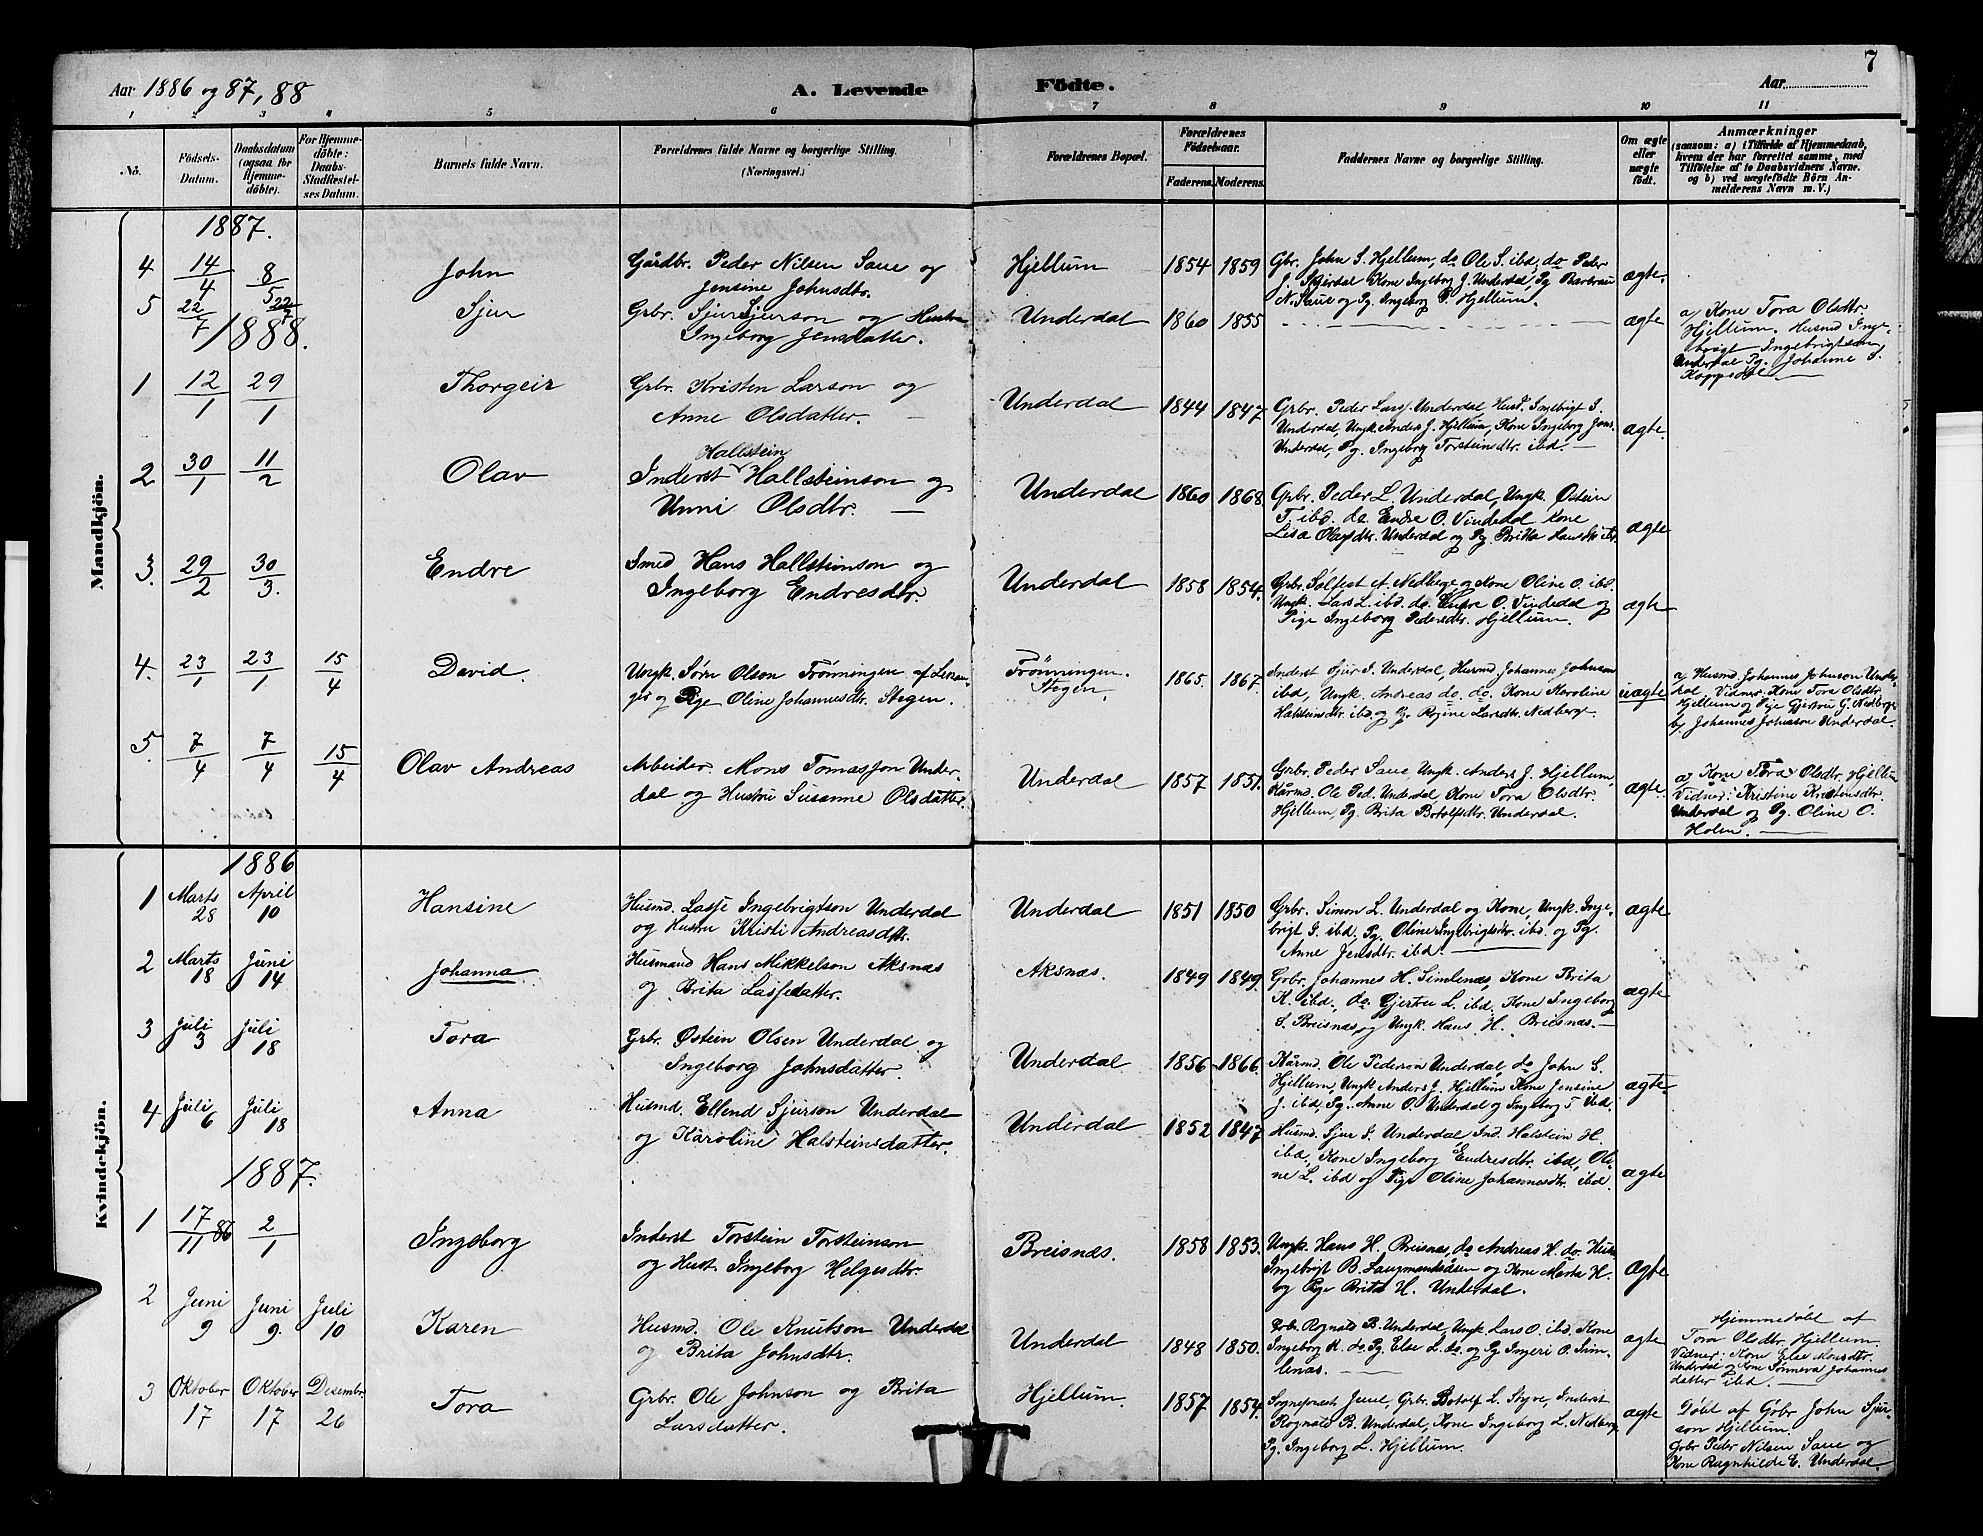 7
Aar 1886 og 87, 88
A. Levende Födte.
Aar
1 2 3 4 5 6 7 8 9 10 11
No.
Födsels-
Datum.
Daabsdatum
(ogsaa for
Hjemme-
döbte).
For Hjemme-
döbte:
Daabs-
Stadfæstel-
ses Datum.
Barnets fulde Navn.
Forældrenes fulde Navne og borgerlige Stilling.
(Næringsvei.)
Forældrenes Bopæl.
Forældrenes
Födselsaar.
Faderens. Moderens.
Faddernes Navne og borgerlige Stilling.
Om ægte
eller
uægte
födt.
Anmærkninger
(saasom: a) i Tilfælde af Hjemmedaab,
hvem der har forrettet samme, med
Tilföielse af to Daabsvidners Navne.
og b) ved uægtefödte Börn An-
melderens Navn m. V.)
Mandkjön.
1887.
4 14/4 8/5 John
Gårdbr. Peder Nilsen Saue og
Jensine Johnsdtr.
Hjellum 1854 1859
Gbr. John S. Hjellum, do Ole S. ibd, do Peder
J. Skjerdal Kone Ingeborg J. Underdal, Pg Barbrau
N. Saue og Pg. Ingeborg S. Hjellum.
ægte.
5 22/7 22/7 Sjur
Grbr. Sjur Sjurson og Hustru
Ingeborg Jensdatter.
Underdal 1860 1855
ægte
a, Kone Tora Olsdtr.
Hjellum. Husmd Inge-
brigt Ingebrigtson
Underdal Pg. Johanne S.
Kappedal
1888.
1 12/1 29/1 Thorgeir
Grbr. Kristen Larson og
Anne Olsdatter.
Underdal 1844 1847
Grbr. Peder Lars. Underdal Husd. Ingebrigt I.
Underdal, Ungk. Anders J. Hjellum, Kone Ingeborg Jons.
Underdal, Pg. Ingeborg Torsteinsdtr. ibd.
ægte.
2 30/1 11/2 Olav
Hallstein
Inderst Hallsteinson og
Unni Olsdtr.
Underdal 1860 1868.
Grbr. Peder L. Underdal, Ungk. Østein
T. ibd. do. Endre O. Vindedal Kone
Lisa Olafsdtr. Underdal og Pg Britta Hansdtr ibd.
ægte
3. 29/2 30/3. Endre
Smed Hans Hallsteinson og
Ingeborg Endresdtr.
Underdal 1858 1854.
Grbr. Sølfest af Nedberge og Kone Oline O. ibd.
Ungk. Lars L. ibd. do. Endre O. Vindedal og
Pige Ingeborg Pedersdtr. Hjellum.
ægte
4. 23/1 23/1 15/4 David
Ungk. Søren Olson Frønningen af Lekan-
ger og Pige Oline Johannesdtr. Stegen.
Frønningen.
Stegen 1865. 1867.
Inderst Sjur S. Underdal, Husmd Johannes Johnson
ibd, Ungk. Andreas do. do. Kone Karoline
Halsteinsdtr. ibd. og Pg. Regine Larsdtr. Nedberge.
uægte
a, Husmd Johannes Johnson Under-
dal, Vidner, Kone Tora Olsdtr.
Hjellum og Pige Gjertru G. Nedberge
b, Johannes Johnsson Underdal.
5. 7/4 7/4 15/4 Olav Andreas
Arbeider. Mons Tomasson Under-
dal og Hustru Susanne Olsdatter.
Underdal 1857 1851.
Grbr. Peder Saue, Ungk. Anders J. Hjellum,
Kårmd. Ole Ped. Underdal Kone Tora Olsdtr.
Hjellum, Pg. Brita Botolfsdtr. Underdal.
ægte.
a, Kone Tora Olsdtr. Hjellum
Vidner: Kristine Kristensdtr.
Underdal og Pg. Oline O.
Holen.
Kvindekjön.
1886
1 Marts 28 April 10 Hansine
Husmd. Lasse Ingebrigtson Underdal
og Hustru Kristi Andreasdtr.
Underdal 1851 1850
Grbr. Simon L. Underdal og Kone, Ungk. Inge-
brigt S. ibd, Pg. Oline Ingebrigtsdtr. ibd. og Pg.
Anne Jensdtr. ibd.
ægte
2 Marts 18 Juni 14 Johanna.
Husmand Hans Mikkelson Aksnæs
og Brita Lassedatter.
Aksnæs. 1849 1849
Grbr. Johannes H. Simlenæs, Kone Brita
K. ibd., do. Gjertru L. ibd. Kone Ingeborg
S. Breisnæs og Ungk. Hans H. Breisnæs.
ægte
3 Juli 3 Juli 18 Tora
Grbr. Østein Olsen Underdal og
Ingeborg Johnsdatter.
Underdal 1856 1866
Kårmd. Ole Pederson Underdal, do John S.
Hjellum, Ungk Anders J. Hjellum Kone Jensine
J. ibd, Pg. Anne O. Underdal og Ingeborg T ibd.
ægte
4 Juli 6 Juli 18 Anna
Husmd. Ellend Sjurson Underdal
og Karoline Halsteinsdatter.
Underdal 1852 1847
Husmd. Sjur S. Underdal, Ind. Halstein H.
ibd, Kone Ingeborg Endresdtr. ibd, Oli-
ne L. ibd og Pige Oline Johannesdtr. ibd.
ægte
1887.
1 17/11 86 2/1 Ingeborg
Inderst Torstein Torsteinson
og Hust. Ingeborg Helgesdtr.
Breisnæs. 1858 1853.
Ungk. Hans H. Breisnæs, do Andreas H. do. Husm
Ingebrigt B. Laugmandsåsen og Kone Marta H.
og Pige Brita H. Underdal.
Ægte
2 Juni 9 Juni 9. Juli 10 Karen
Husmd. Ole Knutson Underdal
og Brita Johnsdtr.
Underdal 1848 1850.
Grb. Rognald B. Underdal, Ungk Lars O. ibd. Kone
Ingeborg K. do. Pg. Else L. do. og Pg Ingeri O. Sim-
lenæs.
ægte
Hjemmedøbt af
Tora Olsdtr. Hjellum.
Vidner: Kone Else Monsdtr.
Underdal og Kone Sønneva Johannes
datter ibd.
3 Oktober 17 Oktober 17 Desembr. 26 Tora
Grbr. Ole Johnson og Brita
Larsdatter.
Hjellum. 1857 1854.
Sogneprest Juul, Grbr. Botolf L. Styve, Inderst
Rognald B. Underdal, Kone Ingeborg L. Nedberge
Pg. Ingeborg L. Hjellum.
ægte
Døbt af Grbr John Sjur-
son Hjellum.
Grbr Peder Nilsen Saue og
Kone Ragnhilde E. Underdal.